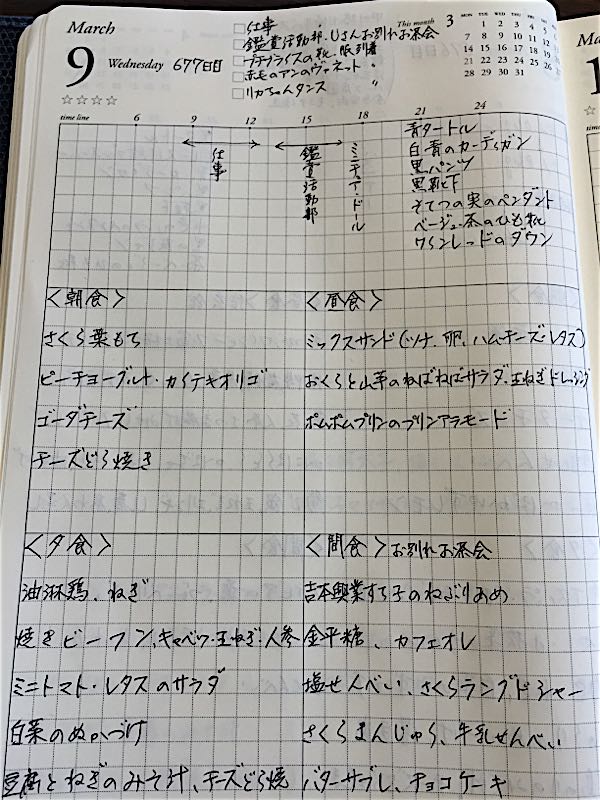 March
9 Wednesday 677日目
☆☆☆☆
□仕事
□鑑賞活動部.Uさんお別れお茶会
□プチプライスの靴.服到着
□赤毛のアンのヴァネット 〃
□リカちゃんタンス 〃
This month 3
MON TUE WED THU FRI SAT SUN
1 2 3 4 5 6
7 8 9 10 11 12 13
14 15 16 17 18 19 20
21 22 23 24 25 26 27
28 29 30 31
time line 6 9 12 15 18 21 24
仕事
鑑賞活動部
ミニチュア・ドール
青タートル
白青のカーディガン
黒パンツ
黒靴下
そてつの実のペンダント
ベージュ・茶のひも靴
ワインレッドのダウン
<朝食>
さくら葉もち
ピーチヨーグルト・カイテキオリゴ
ゴーダチーズ
チーズどら焼き
<昼食>
ミックスサンド(ツナ、卵、ハム・チーズ・レタス)
おくらと山芋のねばねばサラダ、玉ねぎドレッシング
ポムポムプリンのプリンアラモード
<夕食>
油淋鶏、ねぎ
焼きビーフン、キャベツ・玉ねぎ・人参
ミニトマト・レタスのサラダ
白菜のぬかづけ
豆腐とねぎのみそ汁、チーズどら焼
<間食>お別れお茶会
吉本興業すち子のねぶりあめ
金平糖、カフェオレ
塩せんべい、さくらラングドシャー
さくらまんじゅう、牛乳せんべい
バターサブレ、チョコケーキ